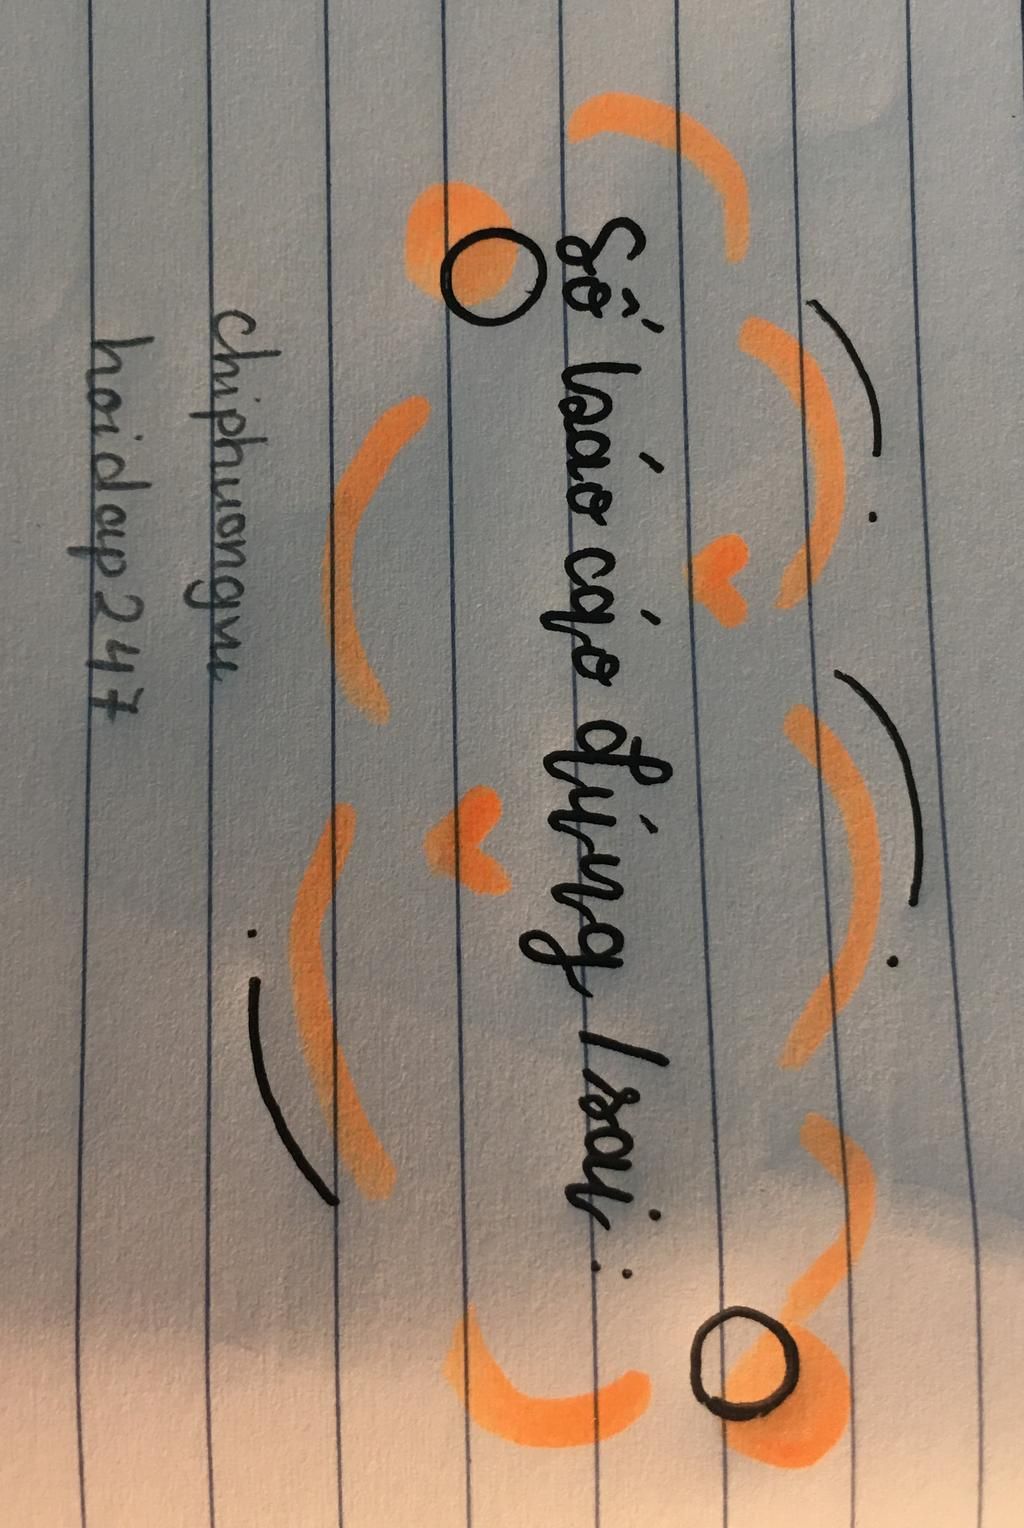 Số báo cáo đúng / sai :
chiphuongvu
hoidap247